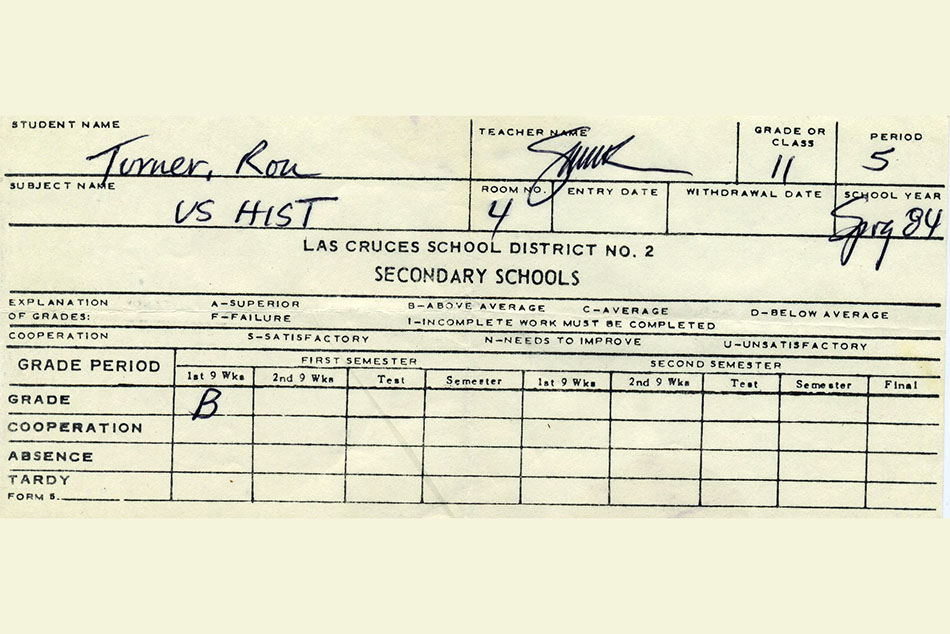 STUDENT NAME TEACHER NAME GRADE OR CLASS PERIOD
Turner, Ron 11 5
SUBJECT NAME ROOM NO. ENTRY DATE WITHDRAWAL DATE SCHOOL YEAR
US HIST 4 Sprg 84
LAS CRUCES SCHOOL DISTRICT NO. 2
SECONDARY SCHOOLS
EXPLANATION A-SUPERIOR B-ABOVE AVERAGE C-AVERAGE D-BELOW AVERAGE
OF GRADES: F-FAILURE I-INCOMPLETE WORK MUST BE COMPLETED
COOPERATION S-SATISFACTORY N-NEEDS TO IMPROVE U-UNSATISFACTORY
GRADE PERIOD FIRST SEMESTER SECOND SEMESTER
1st 9 Wks 2nd 9 Wks Test Semester 1st 9 Wks 2nd 9 Wks Test Semester Final
GRADE B
COOPERATION
ABSENCE
TARDY
FORM 5.